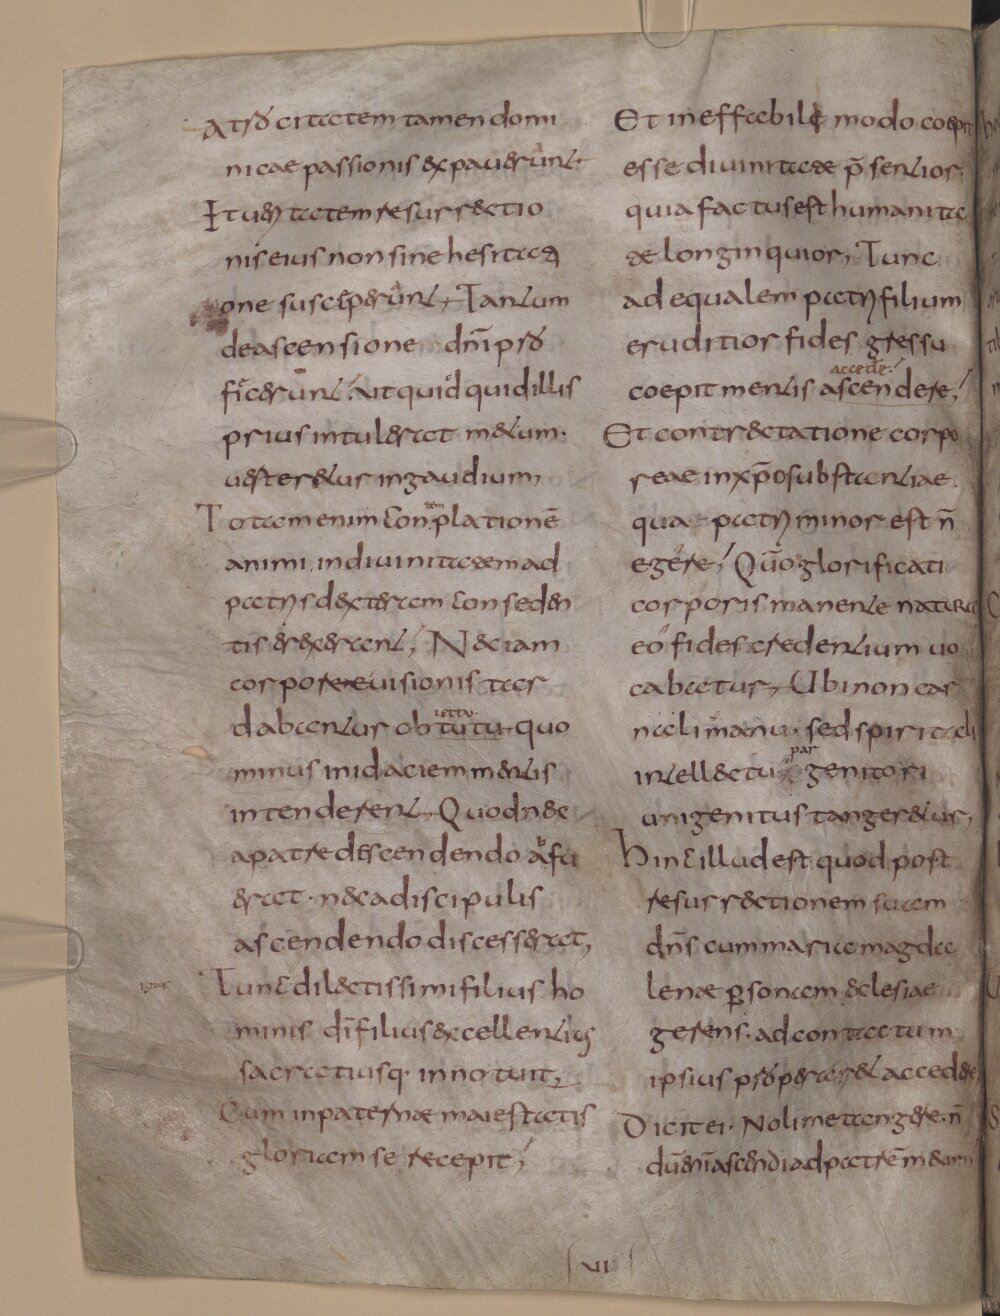 Atrocitatem tamen domi
nicae passionis expauerunt.
Et ueritatem resurrectio
nis eius non sine hesitati
one susceperunt; Tantum
de ascensione dn̄i pro
ficerunt. Ut quid quid illis
prius intulerat metum.
uerteretur in gaudium;
Totam enim conplationē
animi. in diuinitatem ad
patris dexteram conseden
tis erexerant; Nec iam
corporee uisionis tar
dabantur obtutu quo
iectu.
minus inid aciem mentis
intenderent; Quod nec
apatre descendendo afu
erat. nec a discipulis
ascendendo discesserat;
Tunc dilectissimi filius ho
minis dī filius excellentius
sacratiusq· innotuit;
Cum inpaternae maiestatis
gloriam se recepit;
Et ineffabile modo coepit
esse diuinitate p̄sentior
quia factus est humanita
te longinquior; Tunc
ad equalem patri filium
eruditior fides gressu
accedere
coepit mentis ascendere;
Et contrectatione corpo
reae inxp̄o substantiae.
qua patri minor est n̄
egere; Qūo glorificati
corporis manente natura
eo fides credentium uo
cabatur; Ubi non car
nali manu. sed spiritali
par
intellectu genitori
unigenitus tangeretur;
Hinc illud est quod post
resurrectionem suam
dn̄s cum maria magda
lenae personam eclesiae
gerens. ad contactum
ipsius properaret accedere
Dicit ei. Noli me tangere. n̄
dū enī ascendi ad patrē meum
VI